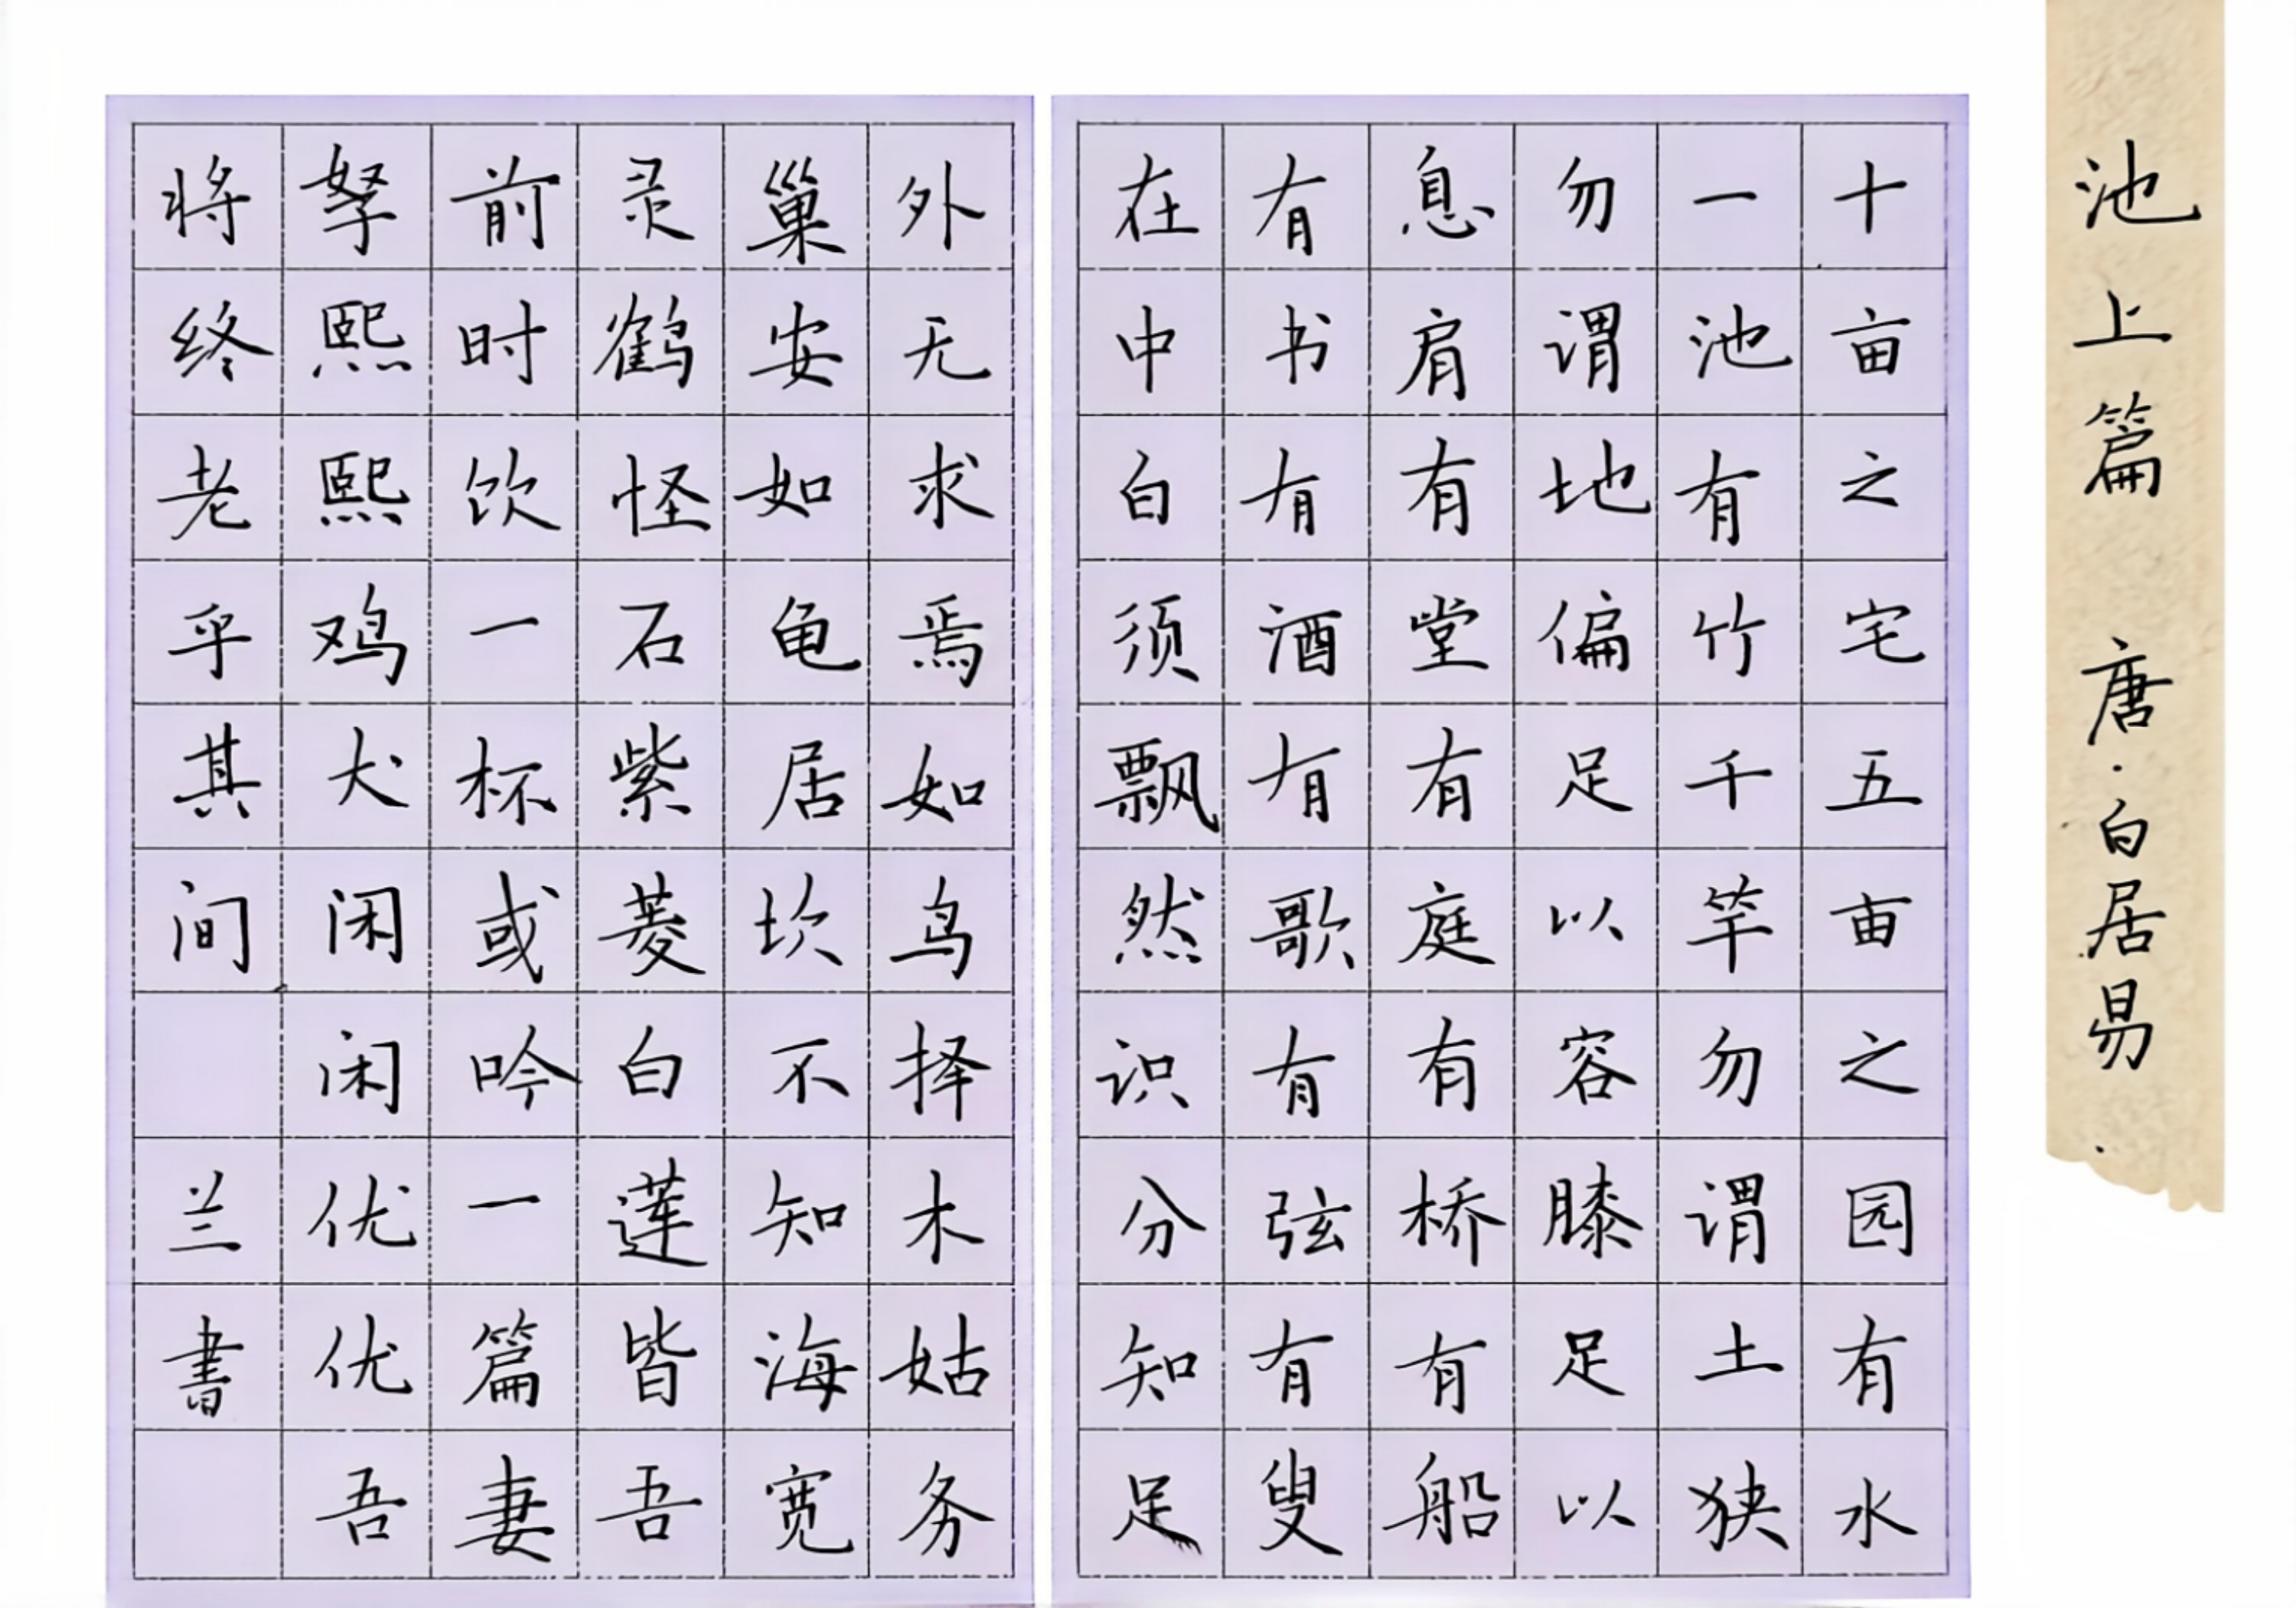 池上篇 唐·白居易
十亩之宅五亩之园有水
一池有竹千竿勿谓土狭
勿谓地偏足以容膝足以
息肩有堂有庭有桥有船
有书有酒有歌有弦有叟
在中白须飘然识分知足
外无求焉如鸟择木姑务
巢安如龟居坎不知海宽
灵鹤怪石紫菱白莲皆吾
前时饮一杯或吟一篇妻
孥熙熙鸡犬闲闲优优吾
将终老乎其间 兰書